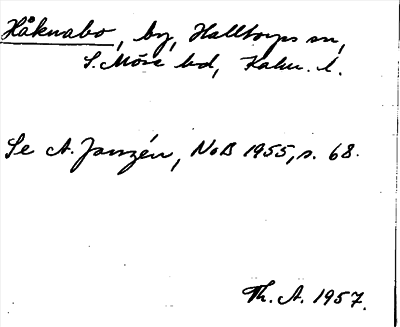 Håknabo, by, Halltorps sn,
S. Möre hd, Kalm. l.
Se A. Janzén, NoB 1955, s. 68.
Th. A. 1957.